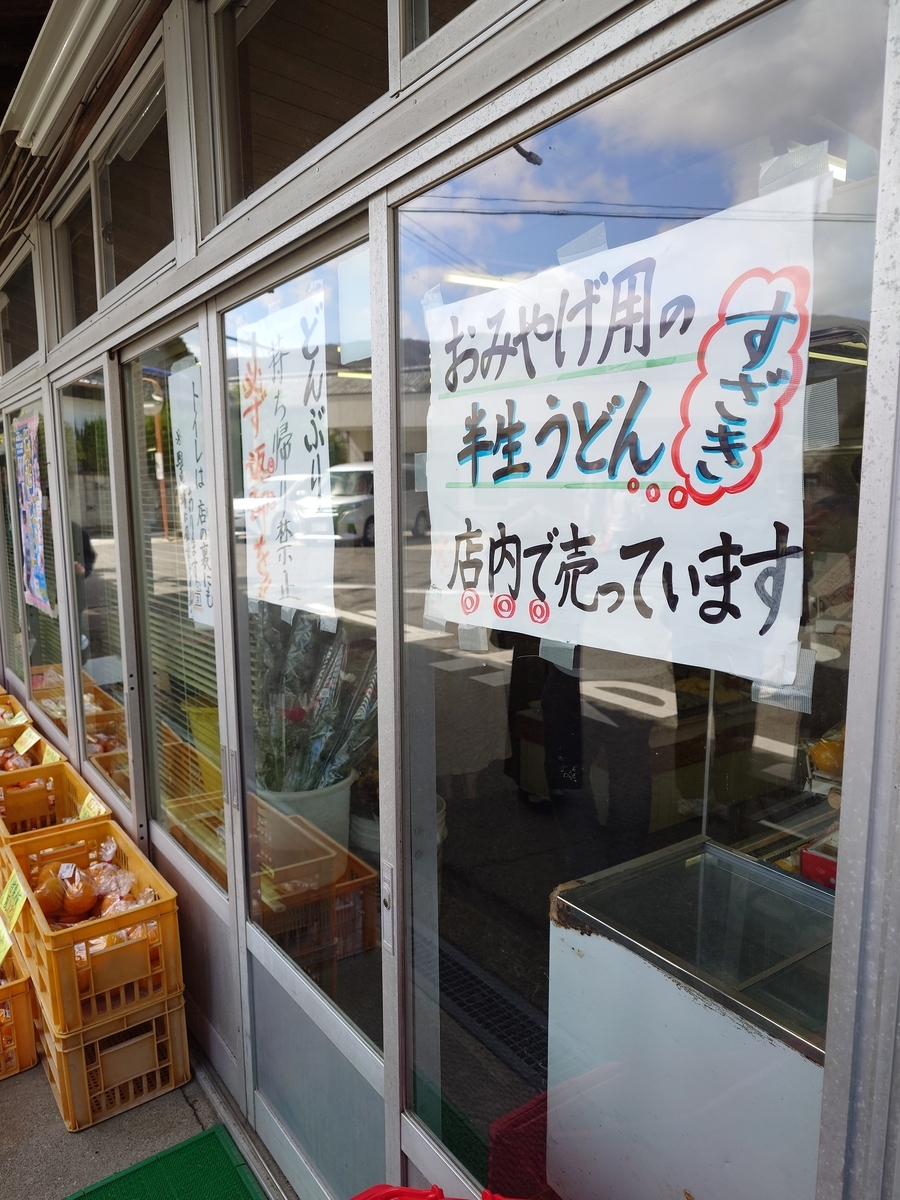 おみやげ用の
半生うどん
すざき
店内で売っています
どんぶり
持ち帰り禁止
トイレは店の裏にも